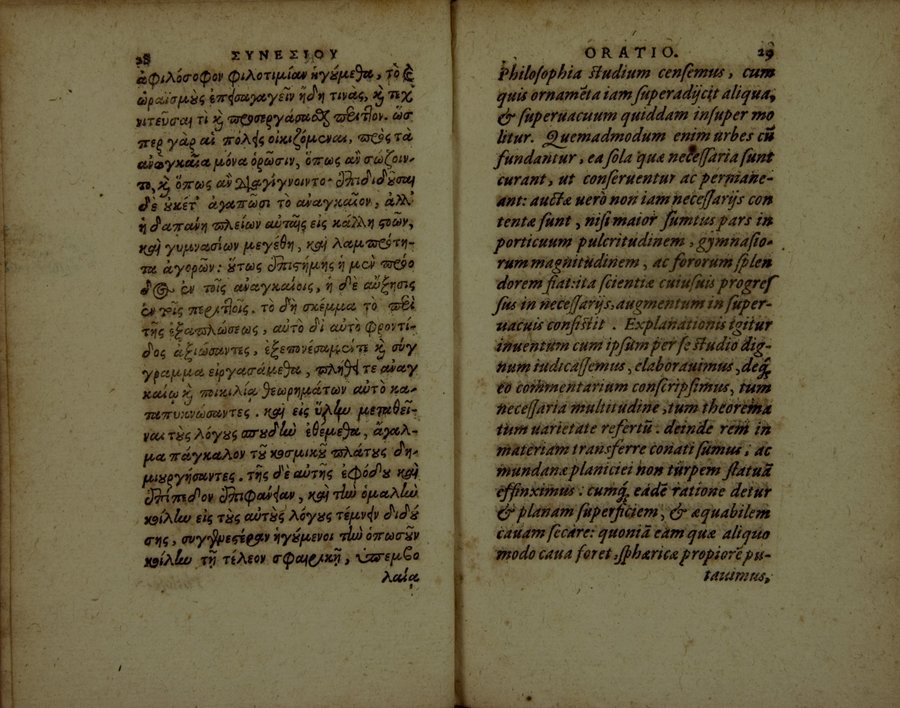 28 ΣΥΝΕΣΙΟΥ
ἀφιλόσοφον φιλοτιμίαν ἡγούμεθα, τὸ
ὡραϊσμοὺς ἐπεισαγαγεῖν ἤδη τινὰς, καὶ τεχ
νιτεῦσαι τὶ καὶ προσεργάσασθαι περιττὸν. ὥσ
περ γὰρ αἱ πόλεις οἰκιζόμεναι, πρὸς τὰ
ἀναγκαῖα μόνα ὁρῶσιν, ὅπως ἂν σώζοιν-
το, καὶ ὅπως ἂν διαγίγνοιντο· ἐπιδιδοῦσαι
δὲ οὐκέτ' ἀγαπῶσι τὸ ἀναγκαῖον, ἀλλ'
ἡ δαπάνη πλείων αὐταῖς εἰς κάλλη στοῶν,
καὶ γυμνασίων μεγέθη, καὶ λαμπρότη-
τα ἀγορῶν: οὕτως ἐπιστήμης ἡ μὲν πρόο
δος ἐν τοῖς ἀναγκαίοις, ἡ δὲ αὔξησις
ἐν τοῖς περιττοῖς. τὸ δὴ σκέμμα τὸ περὶ
τῆς ἐξαπλώσεως, αὐτὸ δι' αὐτὸ φροντί-
δος ἀξιώσαντες, ἐξεπονέσαμέν τε καὶ σύγ
γραμμα εἰργασάμεθα, πλήθει τε ἀναγ
καίῳ καὶ ποικιλίᾳ θεωρημάτων αὐτὸ κα-
ταπυκνώσαντες. καὶ εἰς ὕλην μεταθεῖ-
ναι τοὺς λόγους σπουδὴν ἐθέμεθα, ἄγαλ-
μα πάγκαλον τοῦ κοσμικοῦ πλάτους δη-
μιουργήσαντες. τῆς δὲ αὐτῆς ἐφόδου καὶ
ἐπίπεδον ἐπιφάνειαν, καὶ τὴν ὁμαλὴν
κοίλην εἰς τοὺς αὐτοὺς λόγους τέμνειν διδού
σης, συγγενεστέραν ἡγούμενοι τὴν ὁπωσοῦν
κοίλην τῇ τέλεον σφαιρικῇ, ὑπεμβο
λαία
ORATIO. 29
Philosophia studium censemus, cum
quis ornamēta iam superadijcit aliqua,
& superuacuum quiddam insuper mo
litur. Quemadmodum enim urbes cū
fundantur, ea sola quæ necessaria sunt
curant, ut conseruentur ac permane-
ant: auctæ uerò non iam necessarijs con
tentæ sunt, nisi maior sumtus pars in
porticuum pulcritudinem, gymnasio-
rum magnitudinem, ac fororum splen
dorem fiat: ita scientiæ cuiusuis progres
sus in necessarijs, augmentum in super-
uacuis consistit. Explanationis igitur
inuentum cum ipsum per se studio dig-
num iudicassemus, elaborauimus, deq́;
eo commentarium conscripsimus, tum
necessaria multitudine, tum theorema
tum uarietate refertū: deinde rem in
materiam transferre conati sumus, ac
mundanæ planiciei non turpem statuā
effinximus: cumq́; eādē ratione detur
& planam superficiem, & æquabilem
cauam secare: quoniā eam quæ aliquo
modo caua foret, sphæricæ propiorē pu-
tauimus,